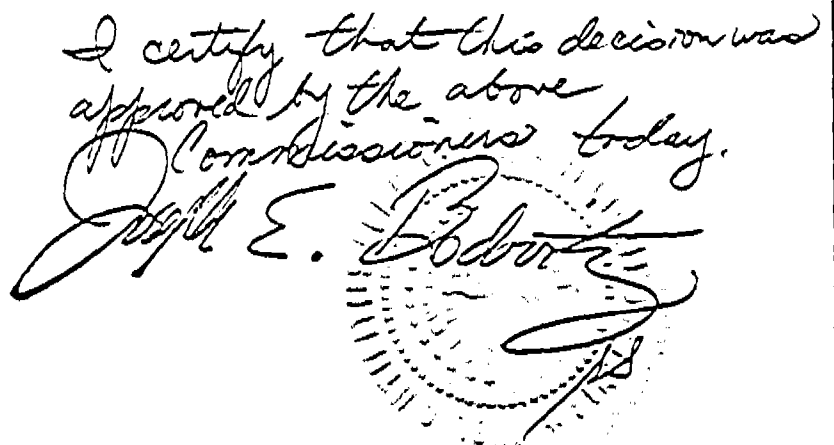 I certify that this decision was
approved by the above
Commissioners today.
Joseph E. Bodovitz